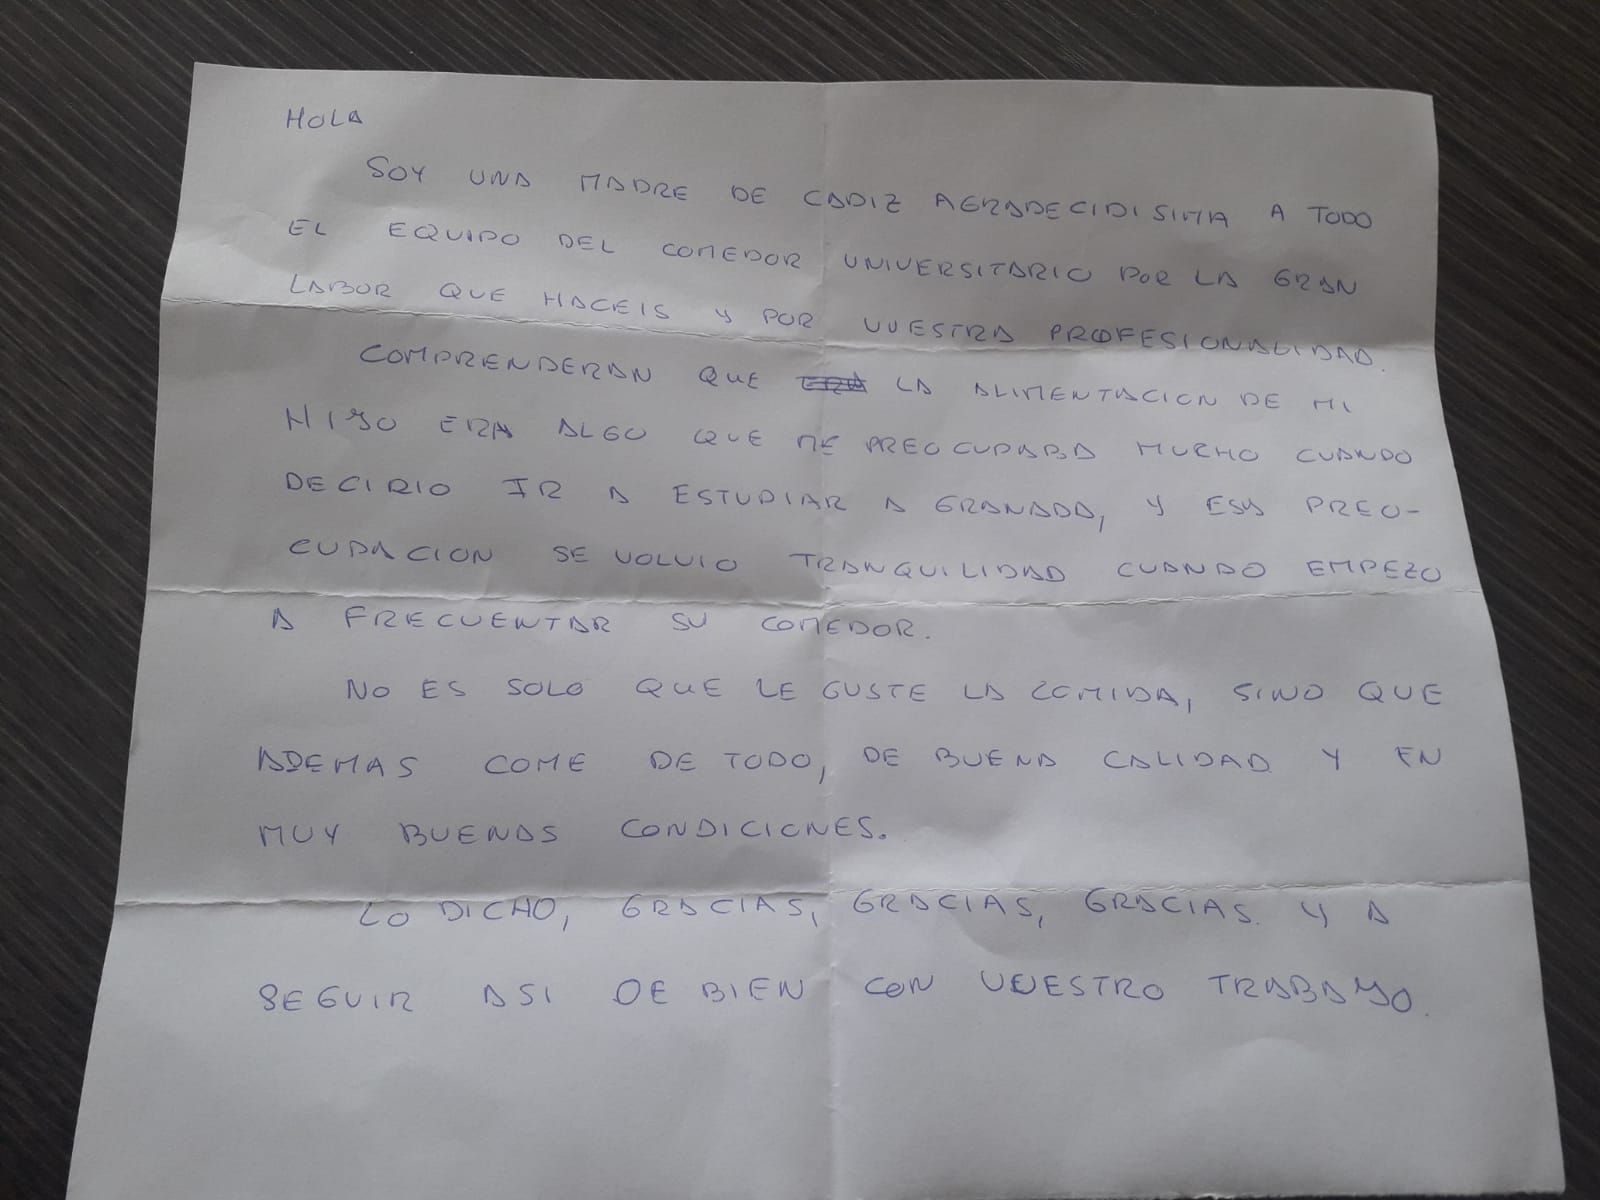 HOLA
SOY UNA MADRE DE CADIZ AGRADECIDISIMA A TODO
EL EQUIPO DEL COMEDOR UNIVERSITARIO POR LA GRAN
LABOR QUE HACEIS Y POR VUESTRA PROFESIONALIDAD.
COMPRENDERAN QUE LA ALIMENTACION DE MI
HIJO ERA ALGO QUE ME PREOCUPABA MUCHO CUANDO
DECIRIO IR A ESTUDIAR A GRANADA, Y ESA PREO-
CUPACION SE VOLVIO TRANQUILIDAD CUANDO EMPEZO
A FRECUENTAR SU COMEDOR.
NO ES SOLO QUE LE GUSTE LA COMIDA, SINO QUE
ADEMAS COME DE TODO, DE BUENA CALIDAD Y EN
MUY BUENAS CONDICIONES.
LO DICHO, GRACIAS, GRACIAS, GRACIAS. Y A
SEGUIR ASI DE BIEN CON VUESTRO TRABAJO.